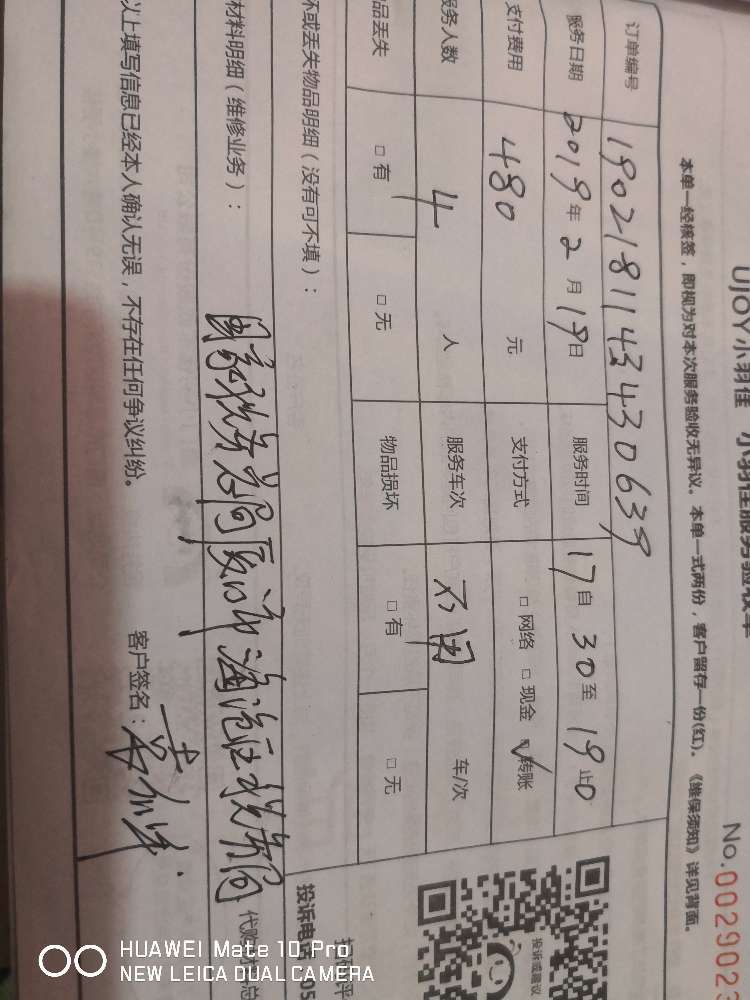 UJOY小羽佳 小羽佳服务验收单
No.0029023
本单一经核签，即视为对本次服务验收无异议。本单一式两份，客户留存一份(红)。《维保须知》详见背面。
订单编号 190218114343430639
服务日期 2019年2月19日 服务时间 17自30至19止0
支付费用 480元 支付方式 □网络 □现金 ☑转账
服务人数 4人 服务车次 不用 车/次
品丢失 □有 □无 物品损坏 □有 □无
坏或丢失物品明细（没有可不填）：
材料明细（维修业务）：
国家税务总局厦门市海沧区税务局
以上填写信息已经本人确认无误，不存在任何争议纠纷。
客户签名：
投诉或建议
投诉电话 05
HUAWEI Mate 10 Pro
NEW LEICA DUAL CAMERA